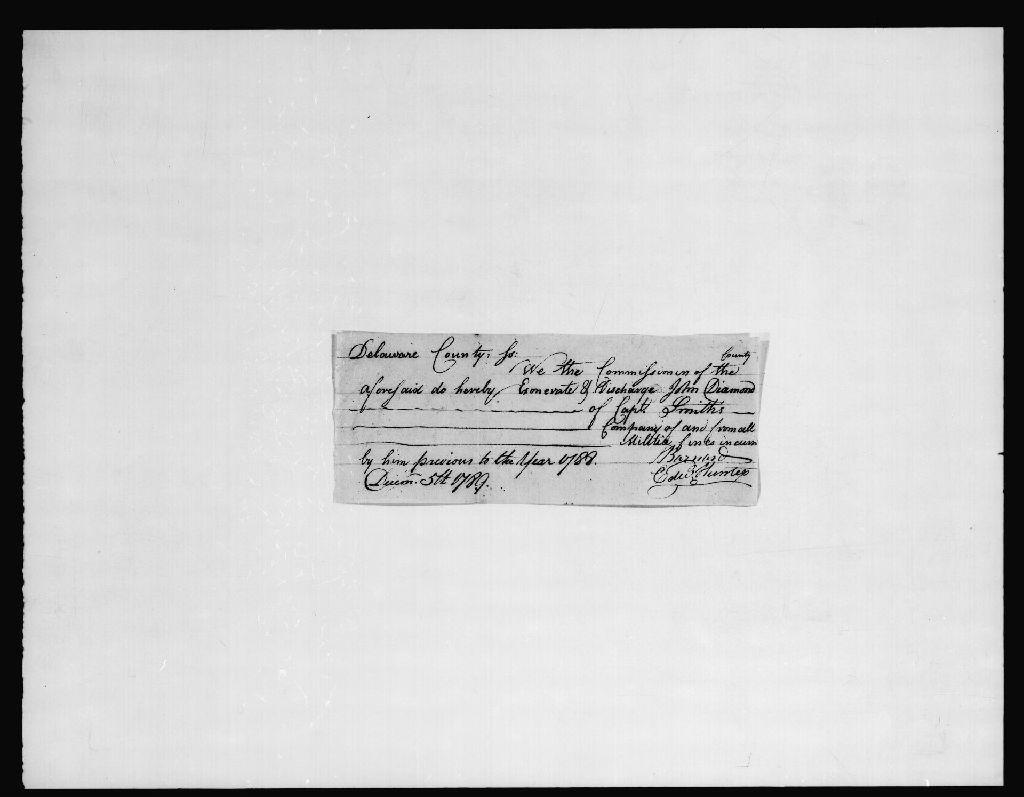 Delaware County: ss:
We the Commissioners of the County
aforesaid do hereby Exonerate & Discharge John Diamond
of Capt Smith's
Company of and from all
Militia fines incurr
by him previous to the Year 1788.
Decem. 5th 1789.
Edw